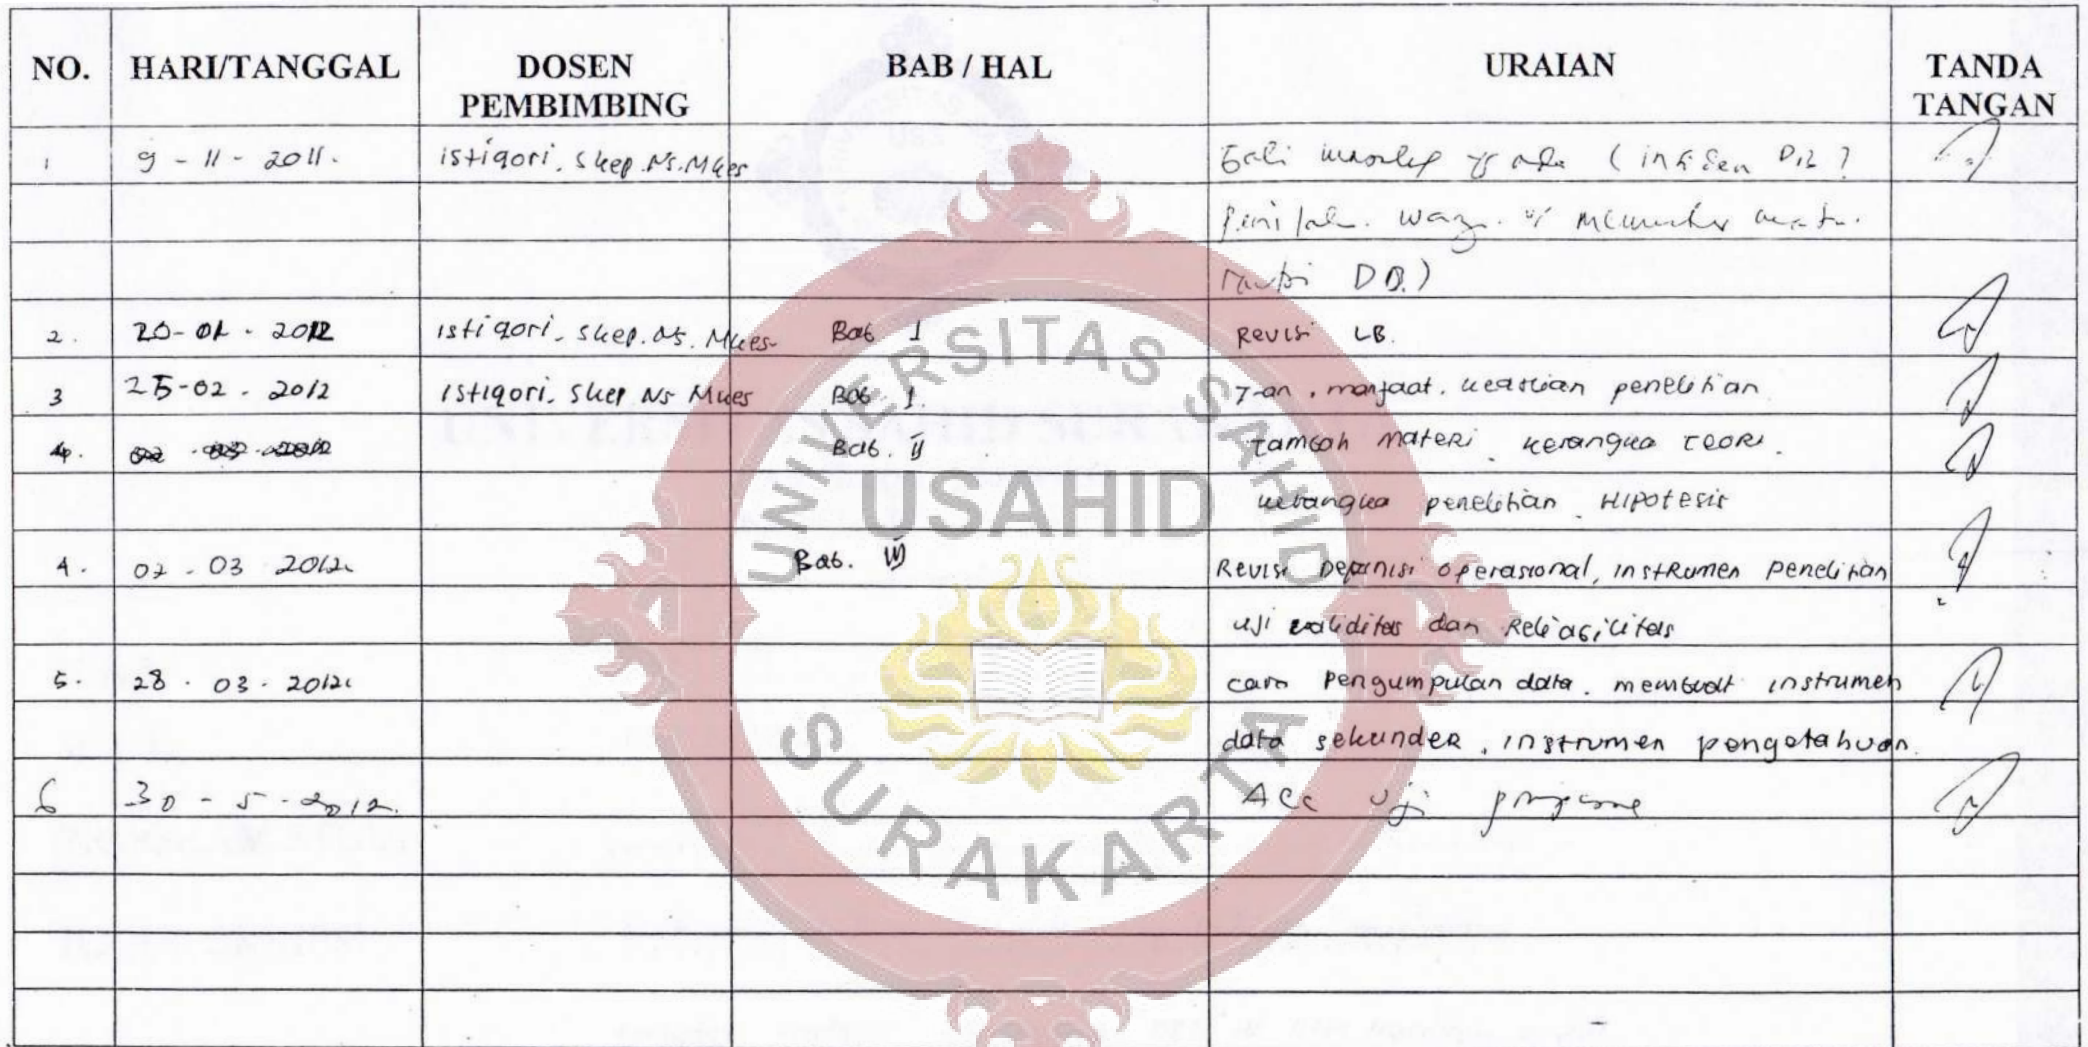 NO. HARI/TANGGAL DOSEN PEMBIMBING BAB / HAL URAIAN TANDA TANGAN
1 9 - 11 - 2011. istiqori. Skep.Ns.Mkes Gali ada (insiden
DB.)
2. 20-01-2012 istiqori. Skep.Ns.Mkes Bab I Revisi LB.
3 25-02-2012 istiqori. Skep Ns Mkes Bab I. T-an, manfaat, keaslian penelitian
4. Bab. II tambah materi, kerangka teori.
kerangka penelitian. Hipotesis
4. 02-03 2012 Bab. III Revisi Depinisi operasional, instrumen penelitian
uji validitas dan Reliabilitas
5. 28-03-2012 cara pengumpulan data. membuat instrumen
data sekunder, instrumen pengetahuan.
6 30-5-2012. Acc uji
UNIVERSITAS SAHID
USAHID
SURAKARTA